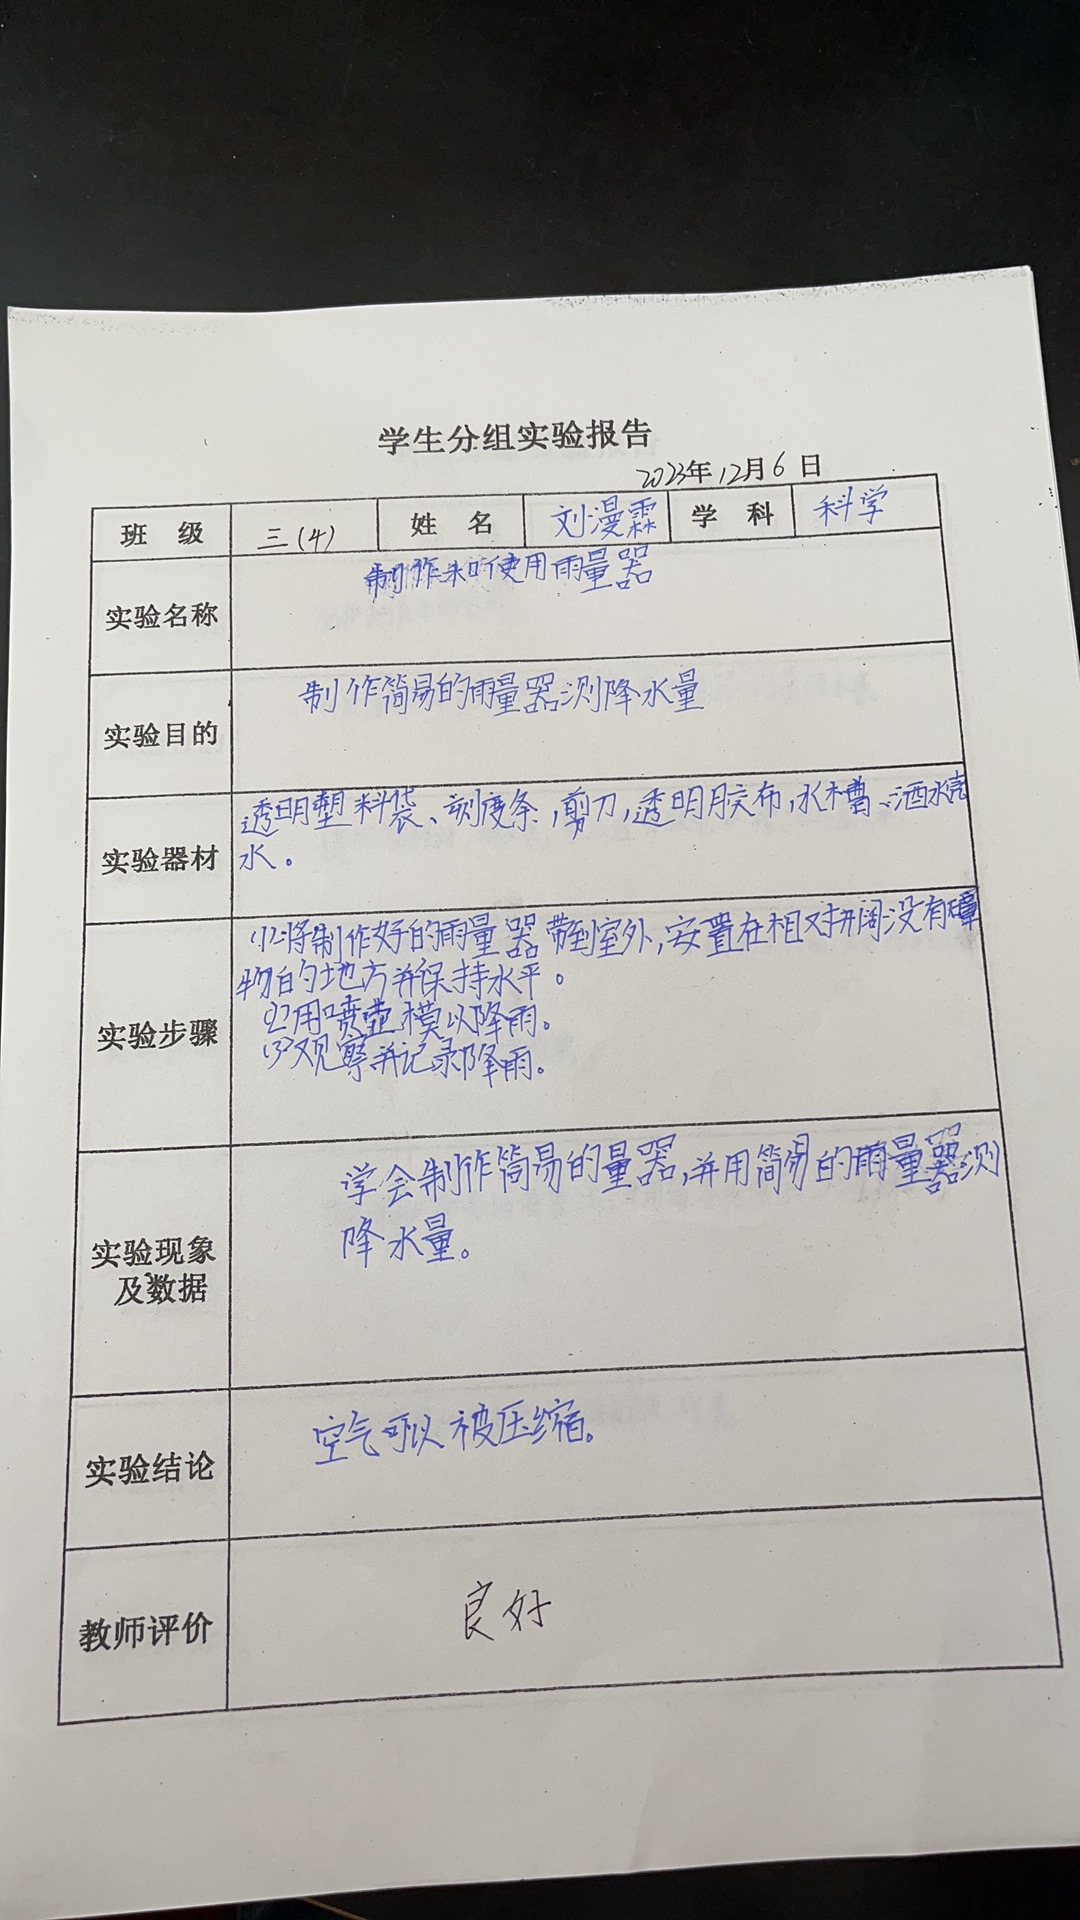 学生分组实验报告
2023年12月6日
班 级 三(4) 姓 名 刘漫霖 学 科 科学
实验名称 制作和使用雨量器
实验目的 制作简易的雨量器测降水量
实验器材 透明塑料袋、刻度条,剪刀,透明胶布,水槽、洒水壶
水。
实验步骤
(1)将制作好的雨量器带到室外,安置在相对开阔没有障
物的地方并保持水平。
(2)用喷壶模以降雨。
(3)观察并记录降雨。
实验现象
及数据
学会制作简易的量器,并用简易的雨量器测
降水量。
实验结论 空气可以被压缩。
教师评价 良好